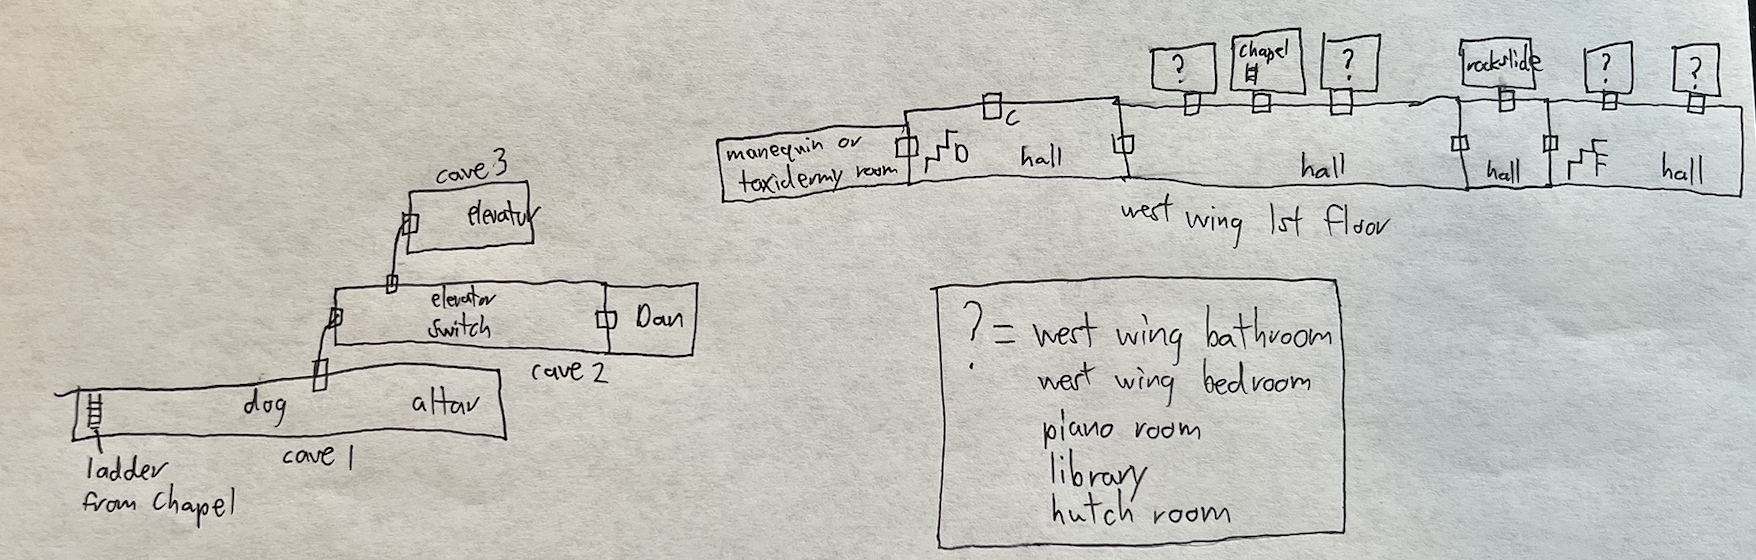 cave 3
elevator
elevator
switch
Dan
cave 2
dog
altar
cave 1
ladder
from Chapel
manequin or
taxidermy room
D
C
hall
?
chapel
?
hall
rockslide
hall
?
?
F
hall
west wing 1st floor
? = west wing bathroom
west wing bedroom
piano room
library
hutch room